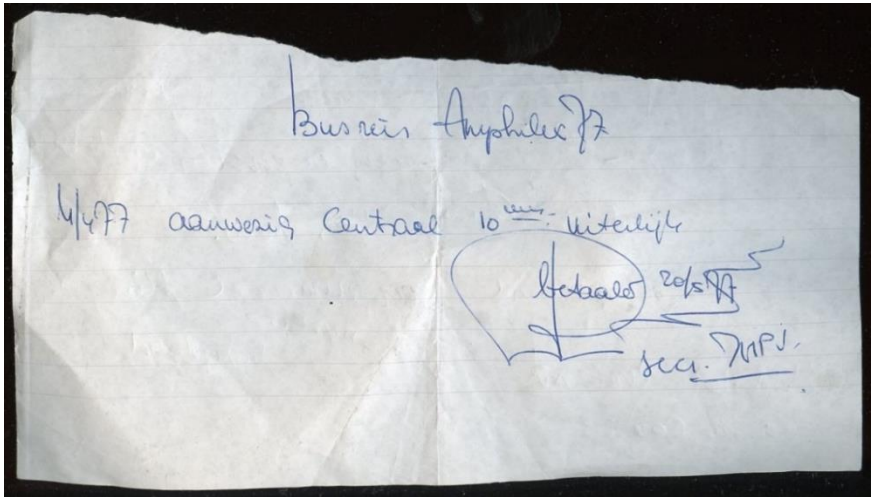 Busreis Amphilex 77
4/477 aanwezig Centraal 10 uur. uiterlijk
betaald 20/5 77
secr.